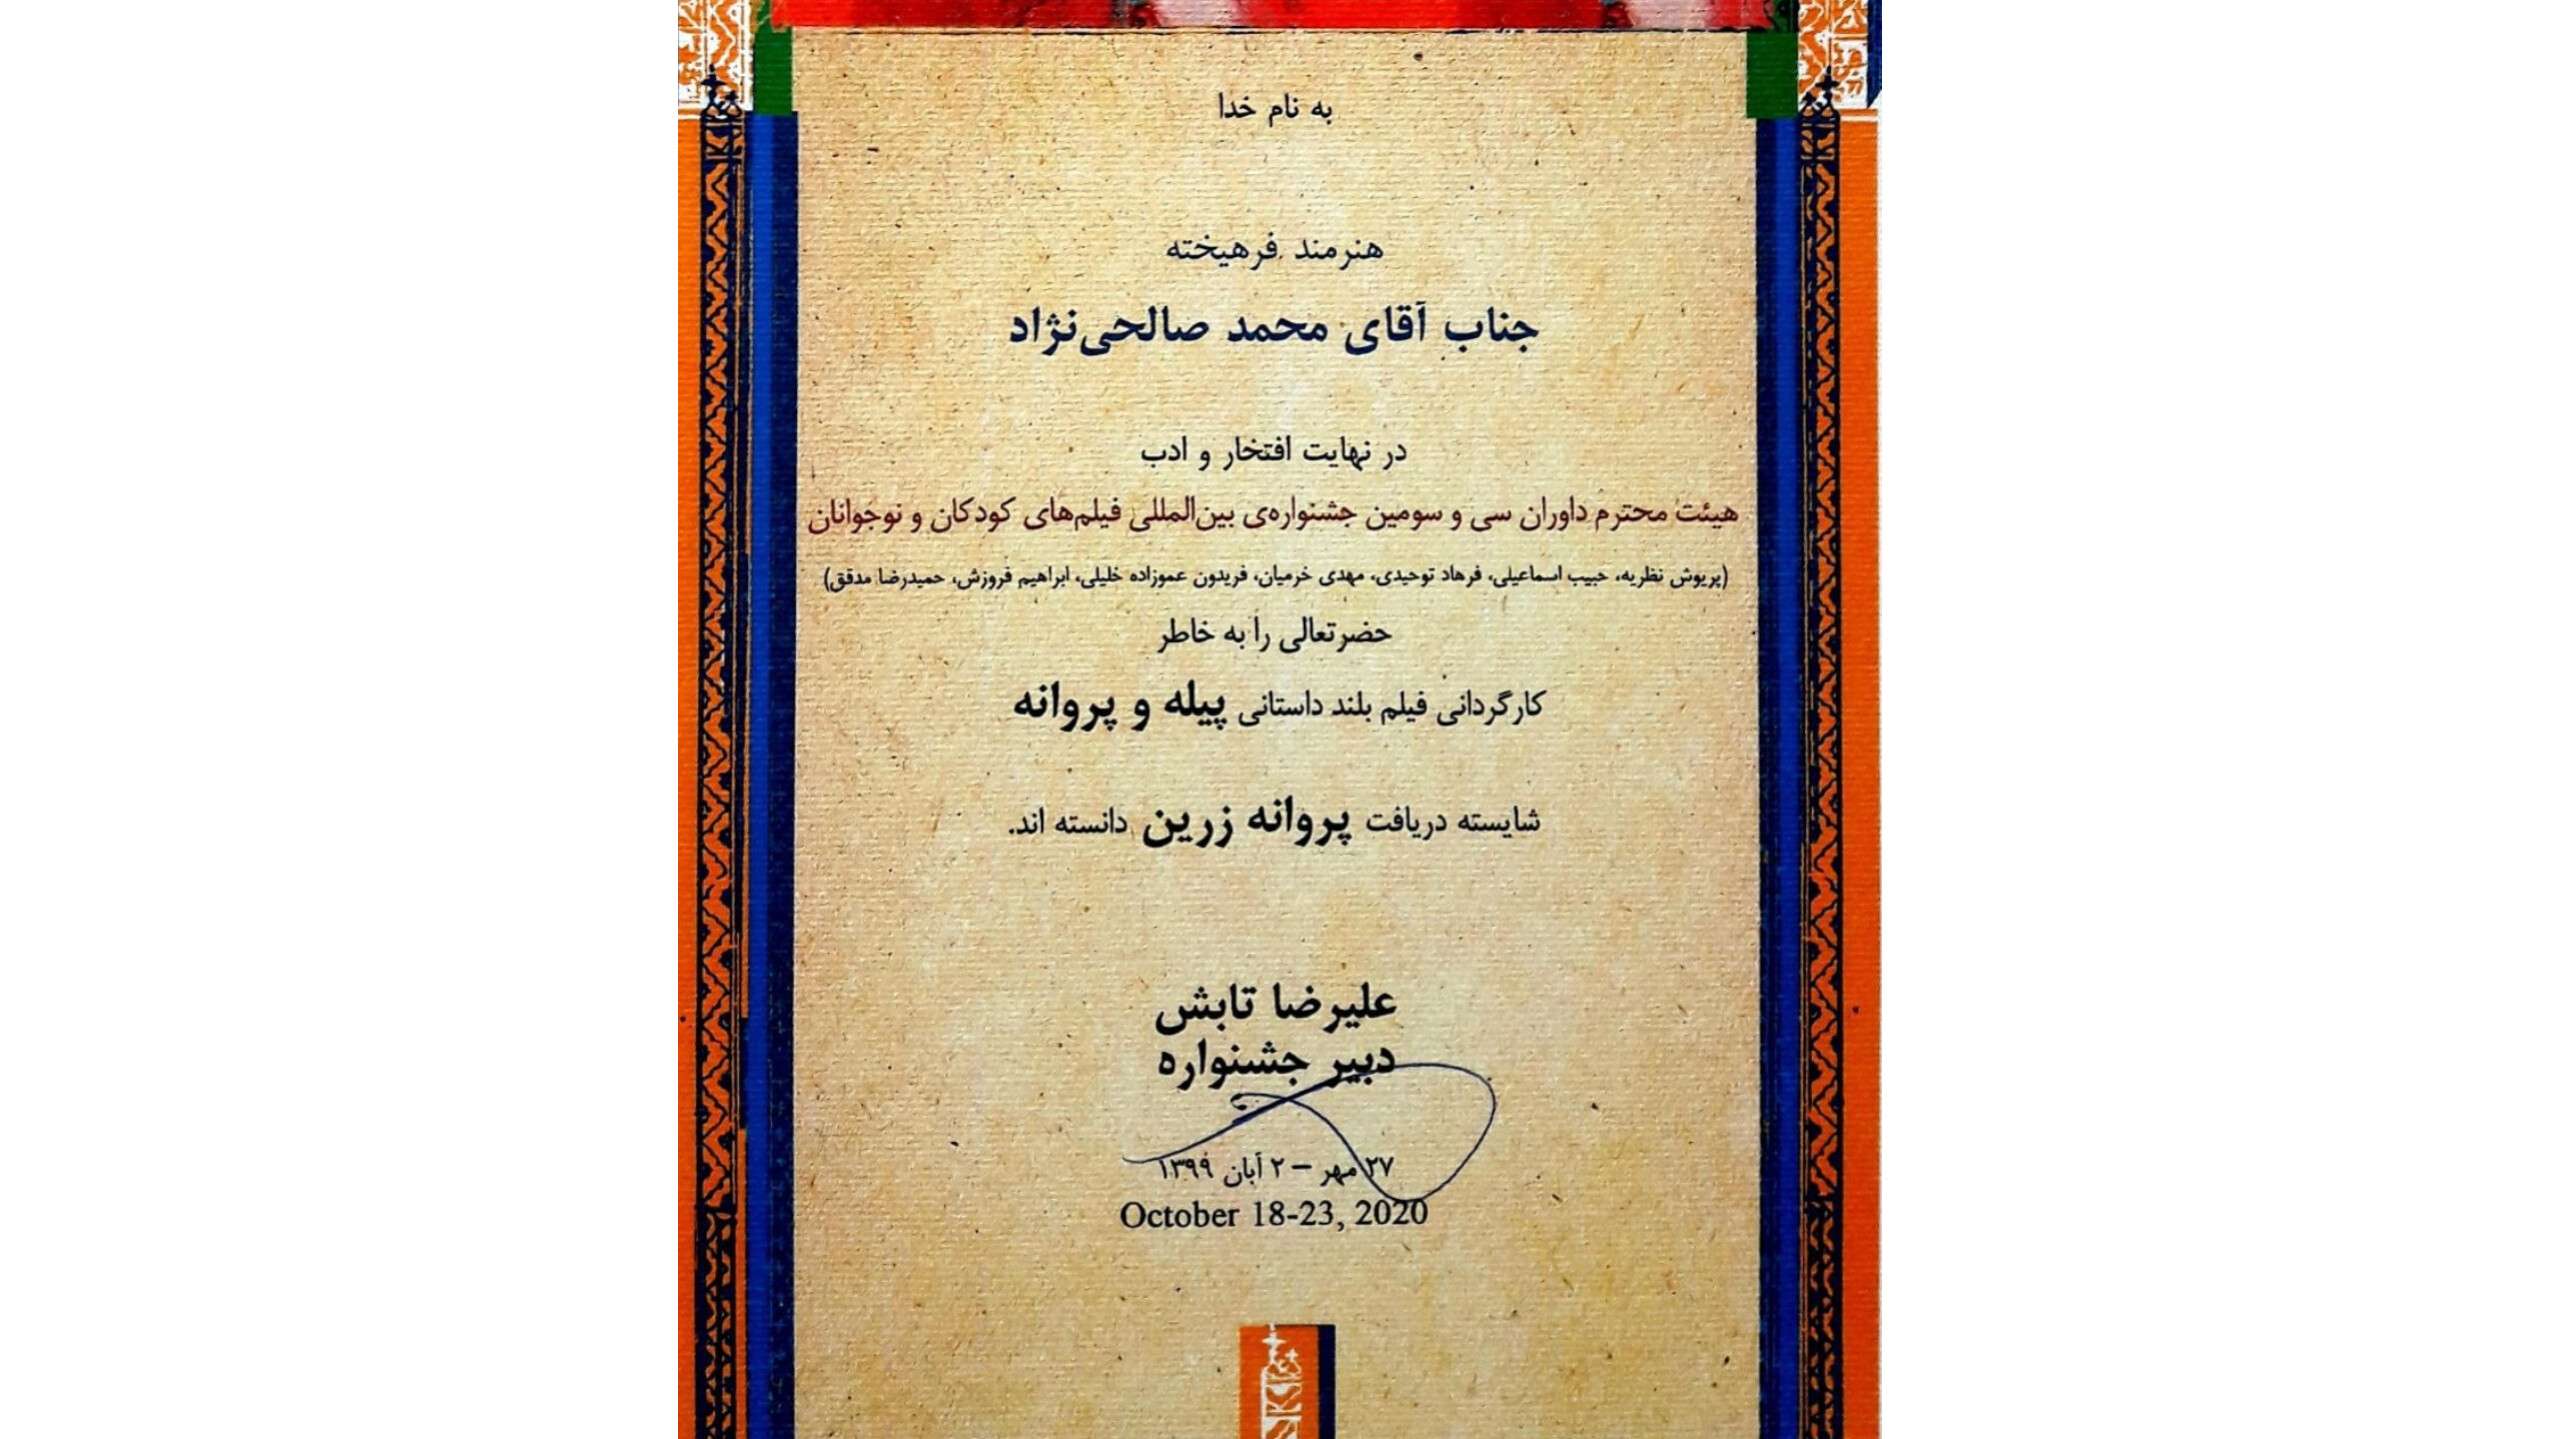 به نام خدا
هنرمند فرهیخته
جناب آقای محمد صالحی‌نژاد
در نهایت افتخار و ادب
هیئت محترم داوران سی و سومین جشنواره‌ی بین‌المللی فیلم‌های کودکان و نوجوانان
(پریوش نظریه، حبیب اسماعیلی، فرهاد توحیدی، مهدی خرمیان، فریدون عموزاده خلیلی، ابراهیم فروزش، حمیدرضا مدقق)
حضرتعالی را به خاطر
کارگردانی فیلم بلند داستانی پیله و پروانه
شایسته دریافت پروانه زرین دانسته اند.
علیرضا تابش
دبیر جشنواره
۲۷ مهر – ۲ آبان ۱۳۹۹
October 18-23, 2020